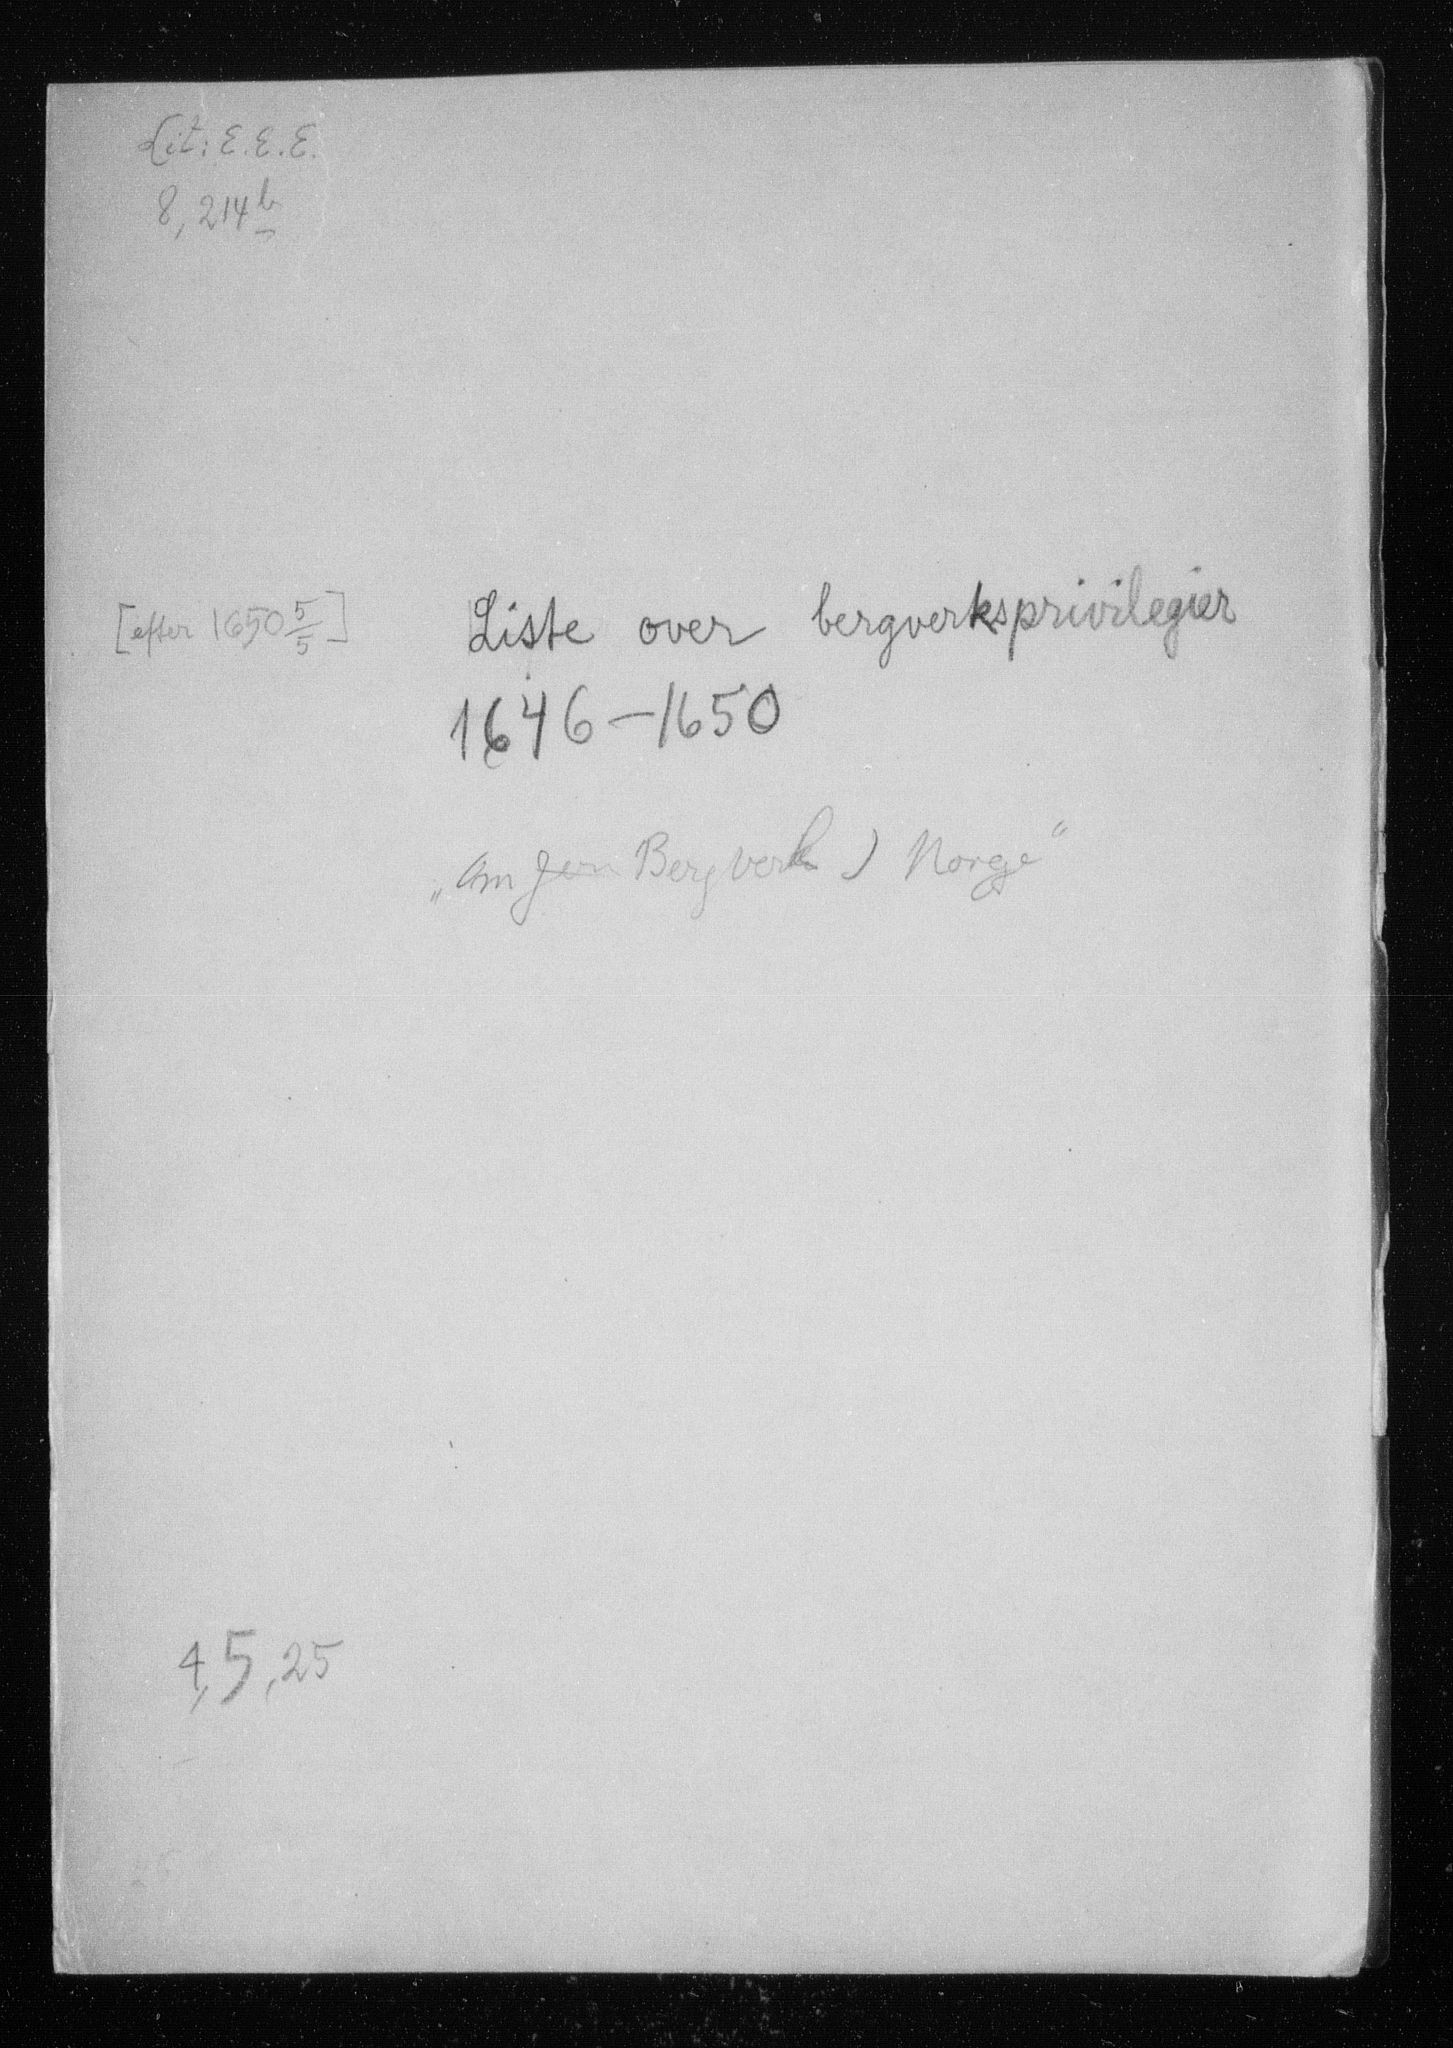 Lit: E. E. E.
8, 214 b
[efter 1650 5/5] Liste over bergverksprivilegier
1646-1650
„Om Jern Bergverk J Norge“
4, 5, 25